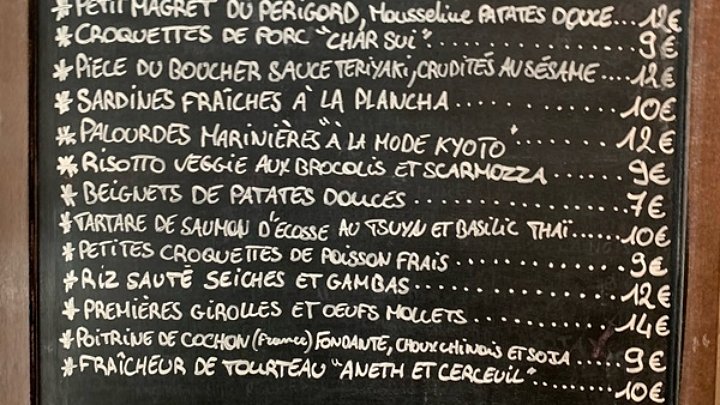 * PETIT MAGRET DU PÉRIGORD, Mousseline PATATES DOUCE... 12€
* CROQUETTES DE PORC "CHAR SUI"............ 9€
* PIÈCE DU BOUCHER SAUCE TERIYAKI, CRUDITÉS AU SÉSAME... 12€
* SARDINES FRAÎCHES À LA PLANCHA............ 10€
* PALOURDES MARINIÈRES "À LA MODE KYOTO"........ 12€
* RISOTTO VEGGIE AUX BROCOLIS ET SCARMOZZA...... 9€
* BEIGNETS DE PATATES DOUCES............ 7€
* TARTARE DE SAUMON D'ÉCOSSE AU TSUYN ET BASILIC THAÏ..... 10€
* PETITES CROQUETTES DE POISSON FRAIS.......... 9€
* RIZ SAUTÉ SEICHES ET GAMBAS............ 12€
* PREMIÈRES GIROLLES ET OEUFS MOLLETS......... 14€
* POITRINE DE COCHON (France) FONDANTE, CHOUX CHINOIS ET SOJA .... 9€
* FRAÎCHEUR DE TOURTEAU "ANETH ET CERCEUIL"......... 10€